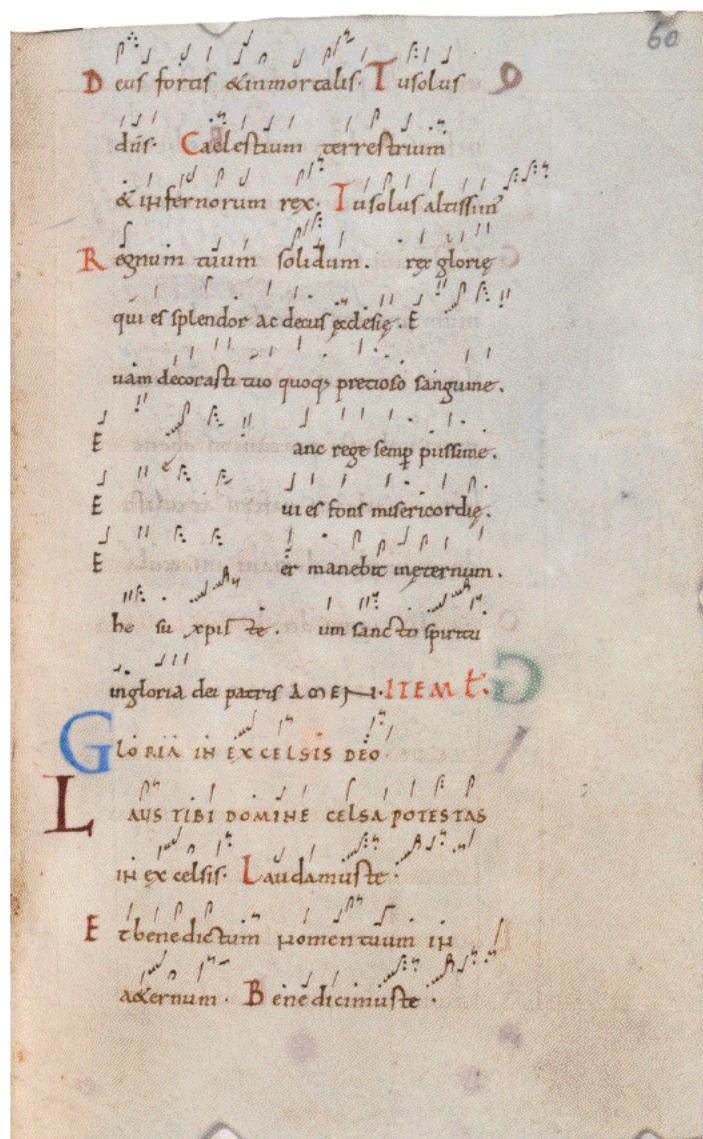 60
Deus fortis & inmortalis. Tu solus
dns. Caelestium terrestrium
& infernorum rex. Tu solus altissim
Regnum tuum solidum. rex glorię
qui es splendor ac decus ęcclesię. E
uam decorasti tuo quoq; precioso sanguine.
E anc rege semp piissime.
E ui es fons misericordię.
E er manebit inęternum.
he su xpis te. um sancto spiritu
in gloria dei patris AMEN. ITEM
GLORIA IN EXCELSIS DEO.
LAUS TIBI DOMINE CELSA POTESTAS
IN excelsis. Laudamus te.
Et benedictum nomen tuum IN
a&ernum. Benedicimus te.